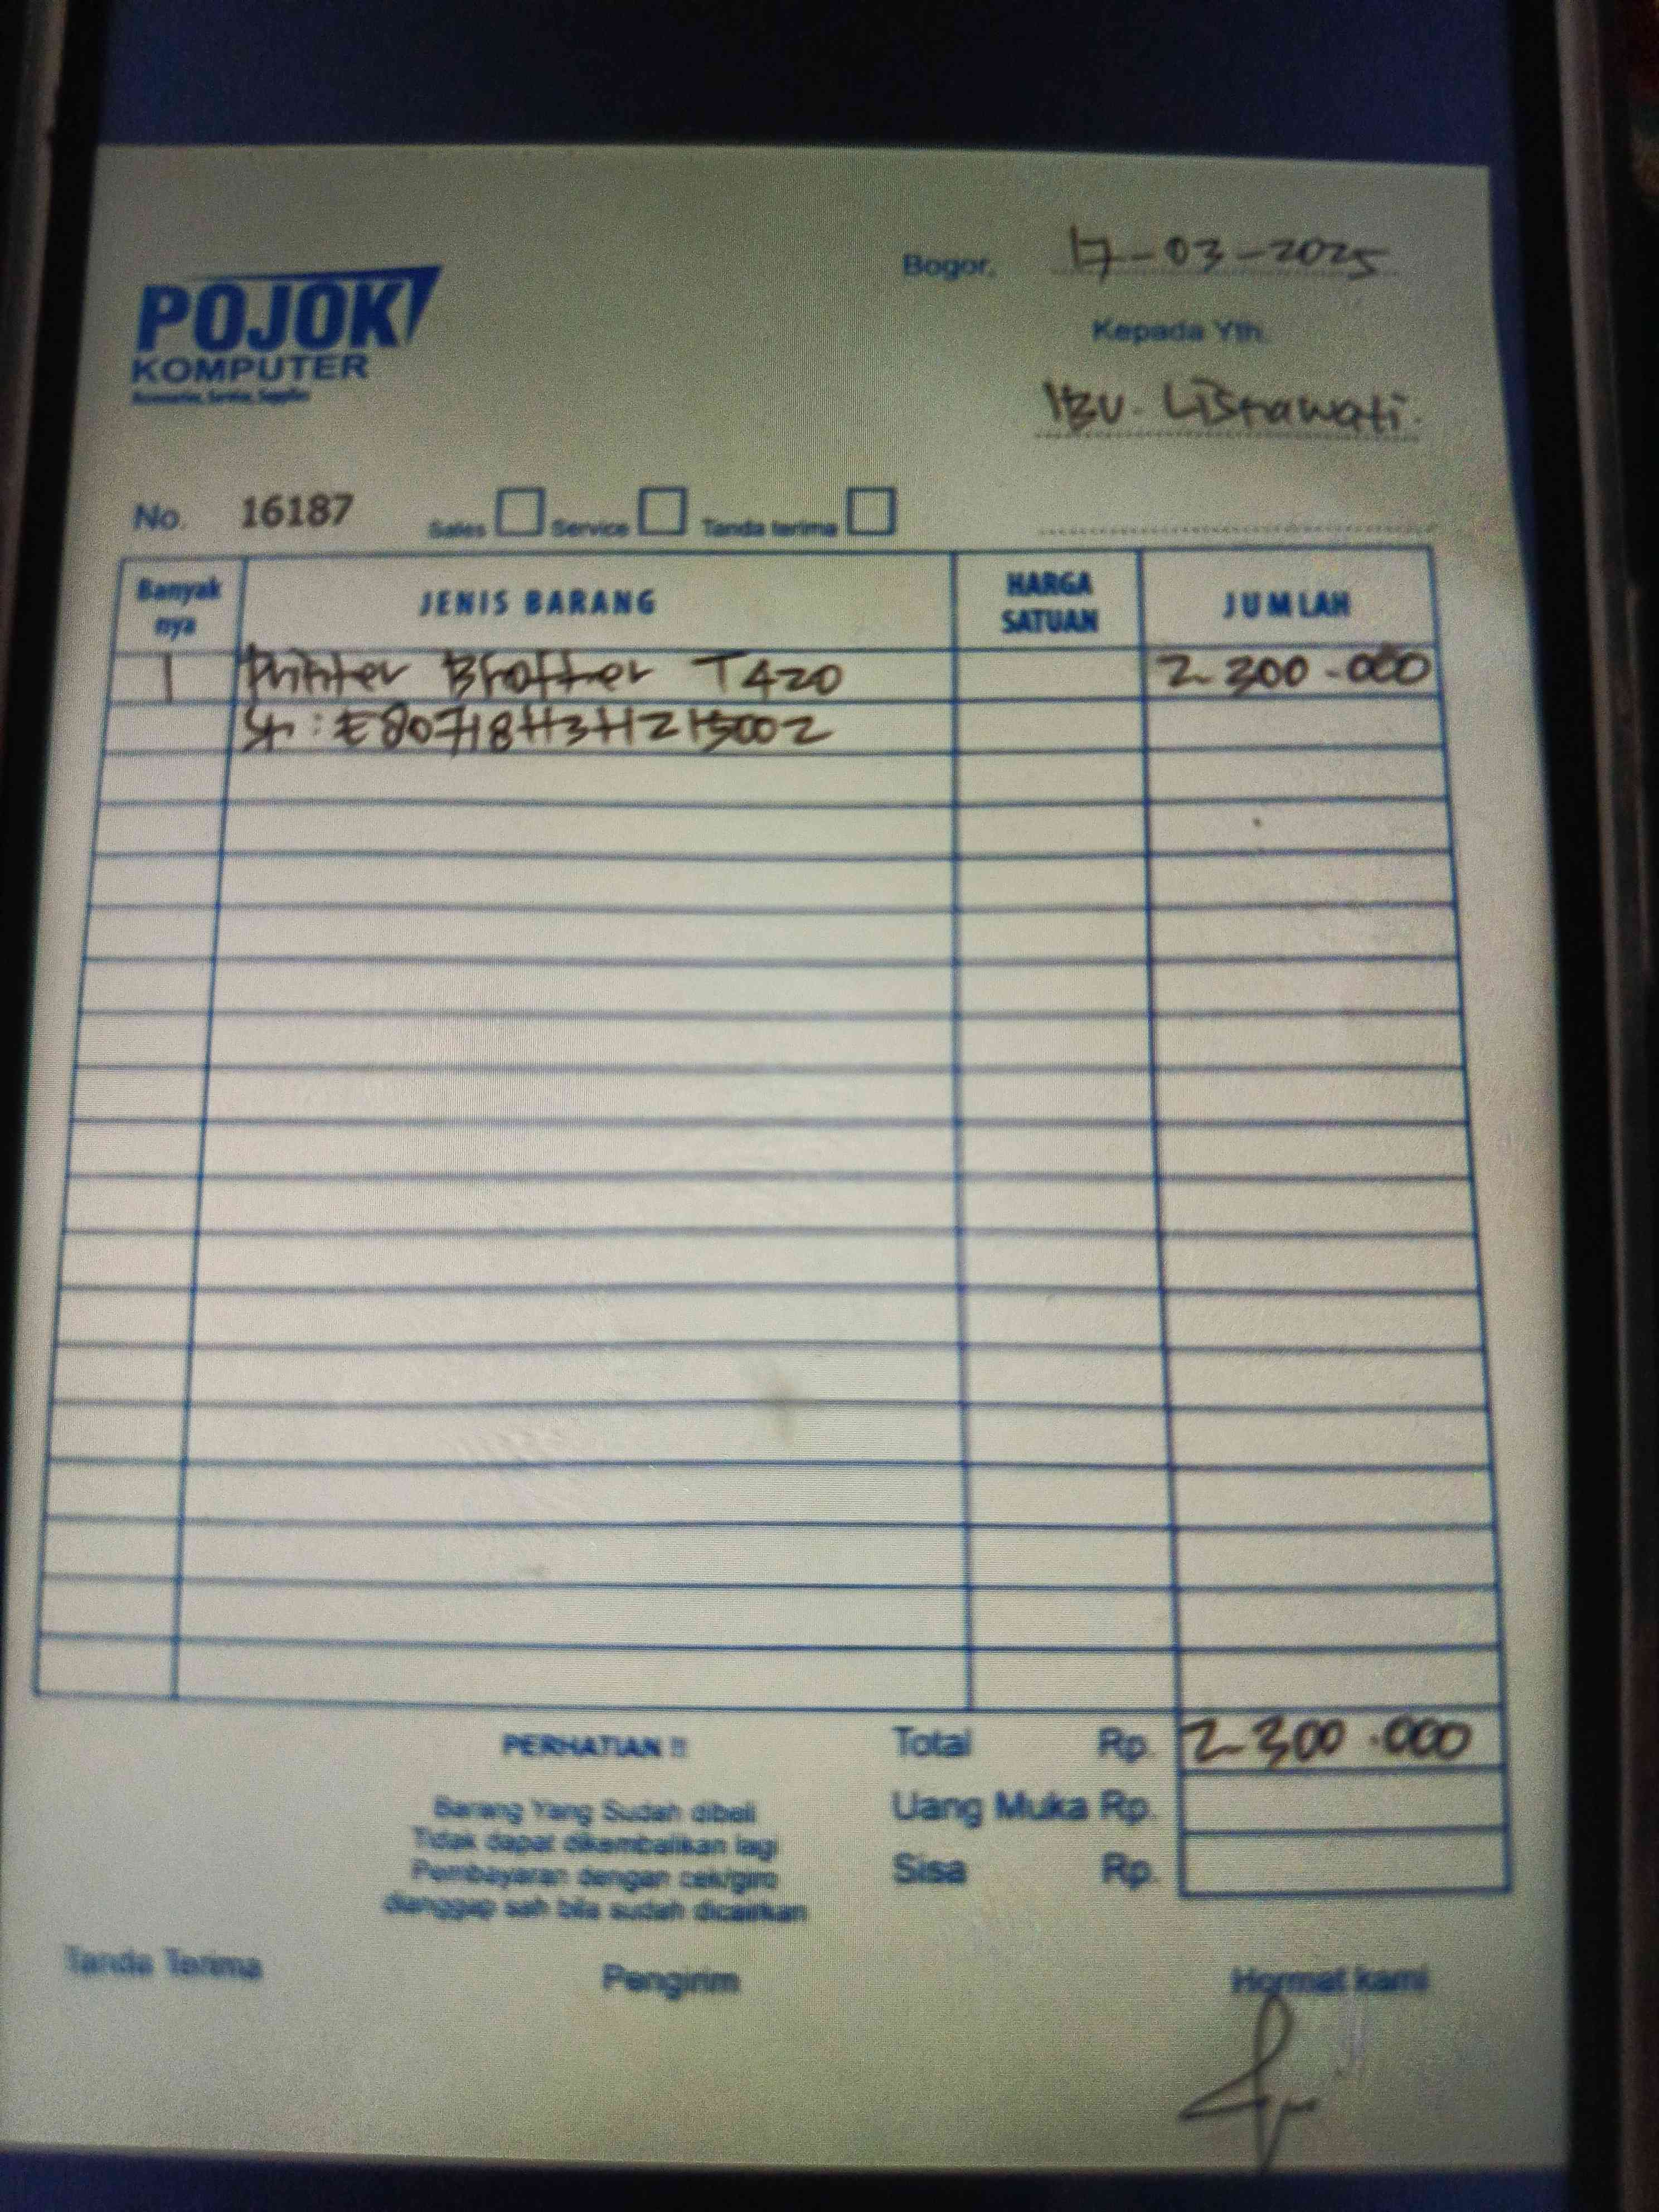 Bogor, 17-03-2025
POJOK
KOMPUTER
Kepada Yth.
IBU. Listrawati.
No. 16187 Sales Service Tanda terima
Banyak nya JENIS BARANG HARGA SATUAN JUMLAH
1 Printer Brother T420 2.300.000
Sn: E80718H3H215002
PERHATIAN !!
Barang Yang Sudah dibeli
Tidak dapat dikembalikan lagi
Pembayaran dengan cek/giro
dianggap sah bila sudah dicairkan
Total Rp. 2.300.000
Uang Muka Rp.
Sisa Rp.
Tanda Terima Pengirim Hormat kami